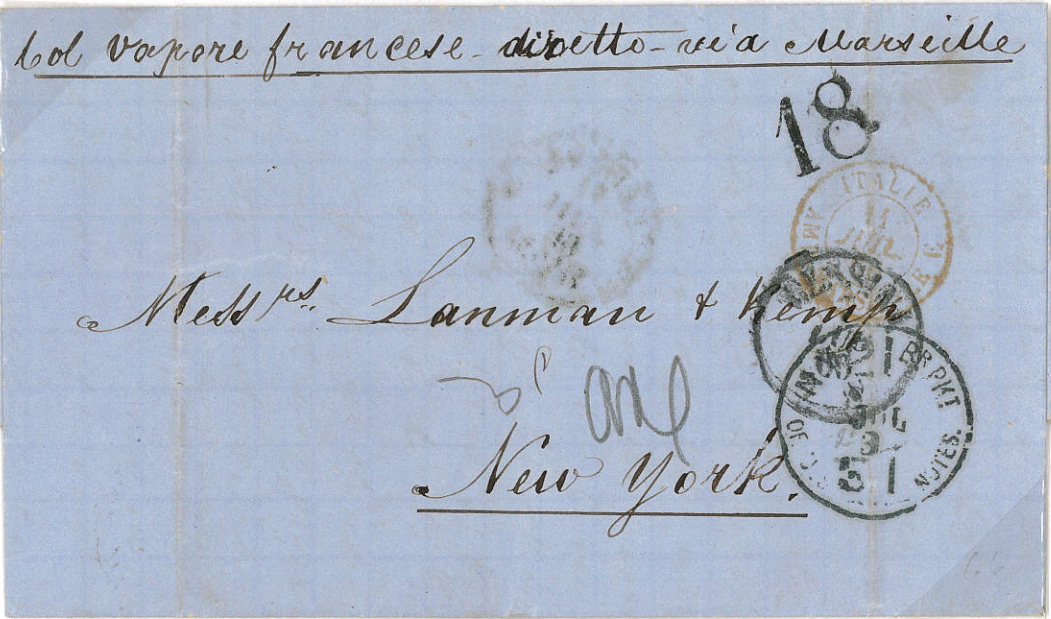 Col vapore francese - diretto - via Marseille
18
ITALIE
11
JUIL
Messrs. Lanman & Kemp
21
BR PKT
JUL
3
51
NOTES.
New York.